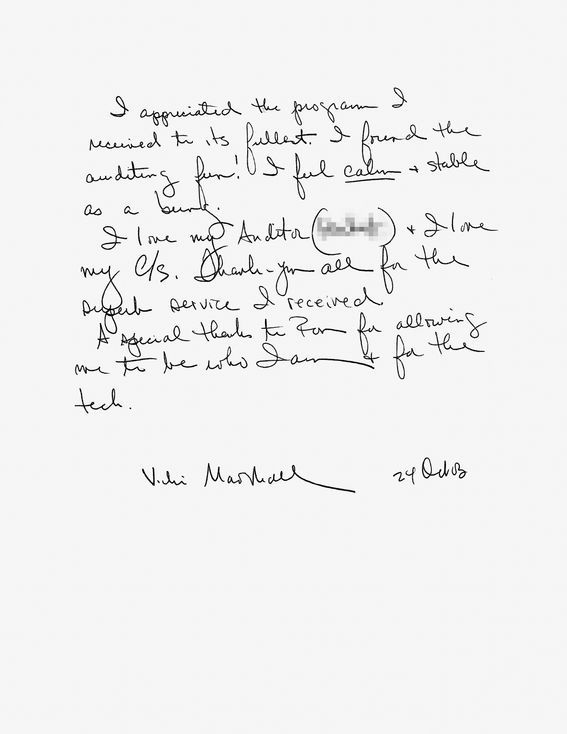 I appreciated the program I
received to its fullest. I found the
auditing fun! I feel calm + stable
as a being.
I love my Auditor ( ) + I love
my C/S. Thank-you all for the
superb service I received.
A special thanks to Ron for allowing
me to be who I am + for the
tech.
Viki Marshall 24 Oct 03